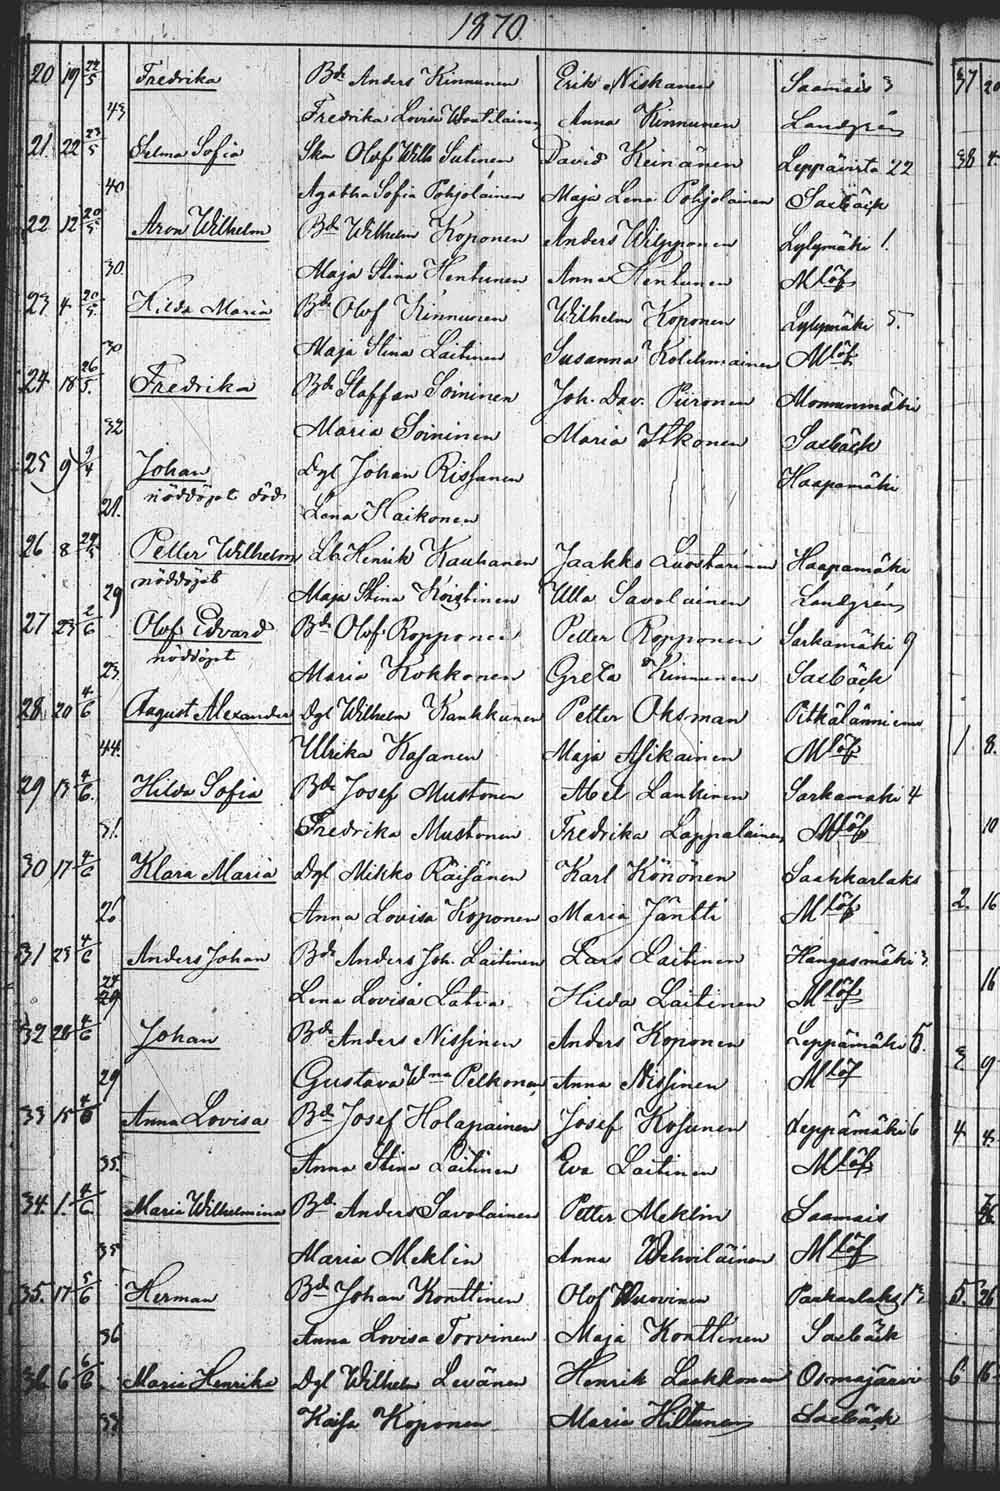 1870
20 19 24/5 Fredrika Bd Anders Kinnunen Erik Niskanen Saamais 3 37 20
43 Fredrika Lovisa Anna Kinnunen Landgrén
21 22 23/5 Selma Sofia Olof Wilh Sutinen David Keinänen Leppävirta 22 38 4
40 Agatha Sofia Pohjolainen Maja Lena Pohjolainen Saxbäck
22 12 20/5 Aron Wilhelm Bd Wilhelm Koponen Anders Wilpponen Lylymäki 1
30 Maja Stina Hentunen Anna Hentunen Mlöf
23 4 20/5 Hilda Maria Bd Olof Kinnunen Wilhelm Koponen Lylymäki 5
30 Maja Stina Laitinen Susanna Kolehmainen Mlöf
24 18 26/5 Fredrika Bd Staffan Soininen Joh. Dav. Piironen Mommunmäki
32 Maria Soininen Maria Itkonen Saxbäck
25 9 Johan Dgl Johan Rissanen Haapamäki
nöddöpt död
21. Lena Haikonen
26 8 29/5 Petter Wilhelm Lb. Henrik Kauhanen Jaakko Luostarinen Haapamäki
nöddöpt
29 Maja Stina Koistinen Ulla Savolainen Landgrén
27 23 2/6 Olof Edvard Bd Olof Ropponen Petter Ropponen Sarkamäki 9
nöddöpt
23 Maria Kokkonen Greta Kinnunen Saxbäck
28 20 4/6 August Alexander Dgl Wilhelm Kankkunen Petter Oksman Pitkälänniemi
44. Ulrika Kasanen Maja Asikainen Mlöf 1 8
29 13 4/6 Hilda Sofia Bd Josef Mustonen Abel Lankinen Sarkamäki 4
31. Fredrika Mustonen Fredrika Lappalainen Mlöf 10
30 17 4/6 Klara Maria Dgl Mikko Räisänen Karl Könönen Saahkarlaks
26 Anna Lovisa Koponen Maria Jäntti Mlöf 2 16
31 23 4/6 Anders Johan Bd Anders Joh. Laitinen Lars Laitinen Hangasmäki 3
24 29 Lena Lovisa Latva Hilda Laitinen Mlöf 16
32 28 4/6 Johan Bd Anders Nissinen Anders Koponen Leppämäki 5.
29 Gustava Wna Pelkonen Anna Nissinen Mlöf 3 9
33 15 4/6 Anna Lovisa Bd Josef Holapainen Josef Kosunen Leppämäki 6 4 4
35. Anna Stina Laitinen Eva Laitinen Mlöf
34. 1. 4/6 Maria Wilhelmina Bd. Anders Savolainen Petter Meklin Saamais
35 Maria Meklin Anna Wehviläinen Mlöf
35. 17 5/6 Herman Bd Johan Konttinen Olof Wuorinen Parkarlaks 5. 26
36 Anna Lovisa Torvinen Maja Konttinen Saxbäck
36 6 6/6 Maria Henrika Dgl Wilhelm Levänen Henrik Laakkonen Osmajärvi 6 16
33 Kaisa Koponen Maria Hiltunen Saxbäck